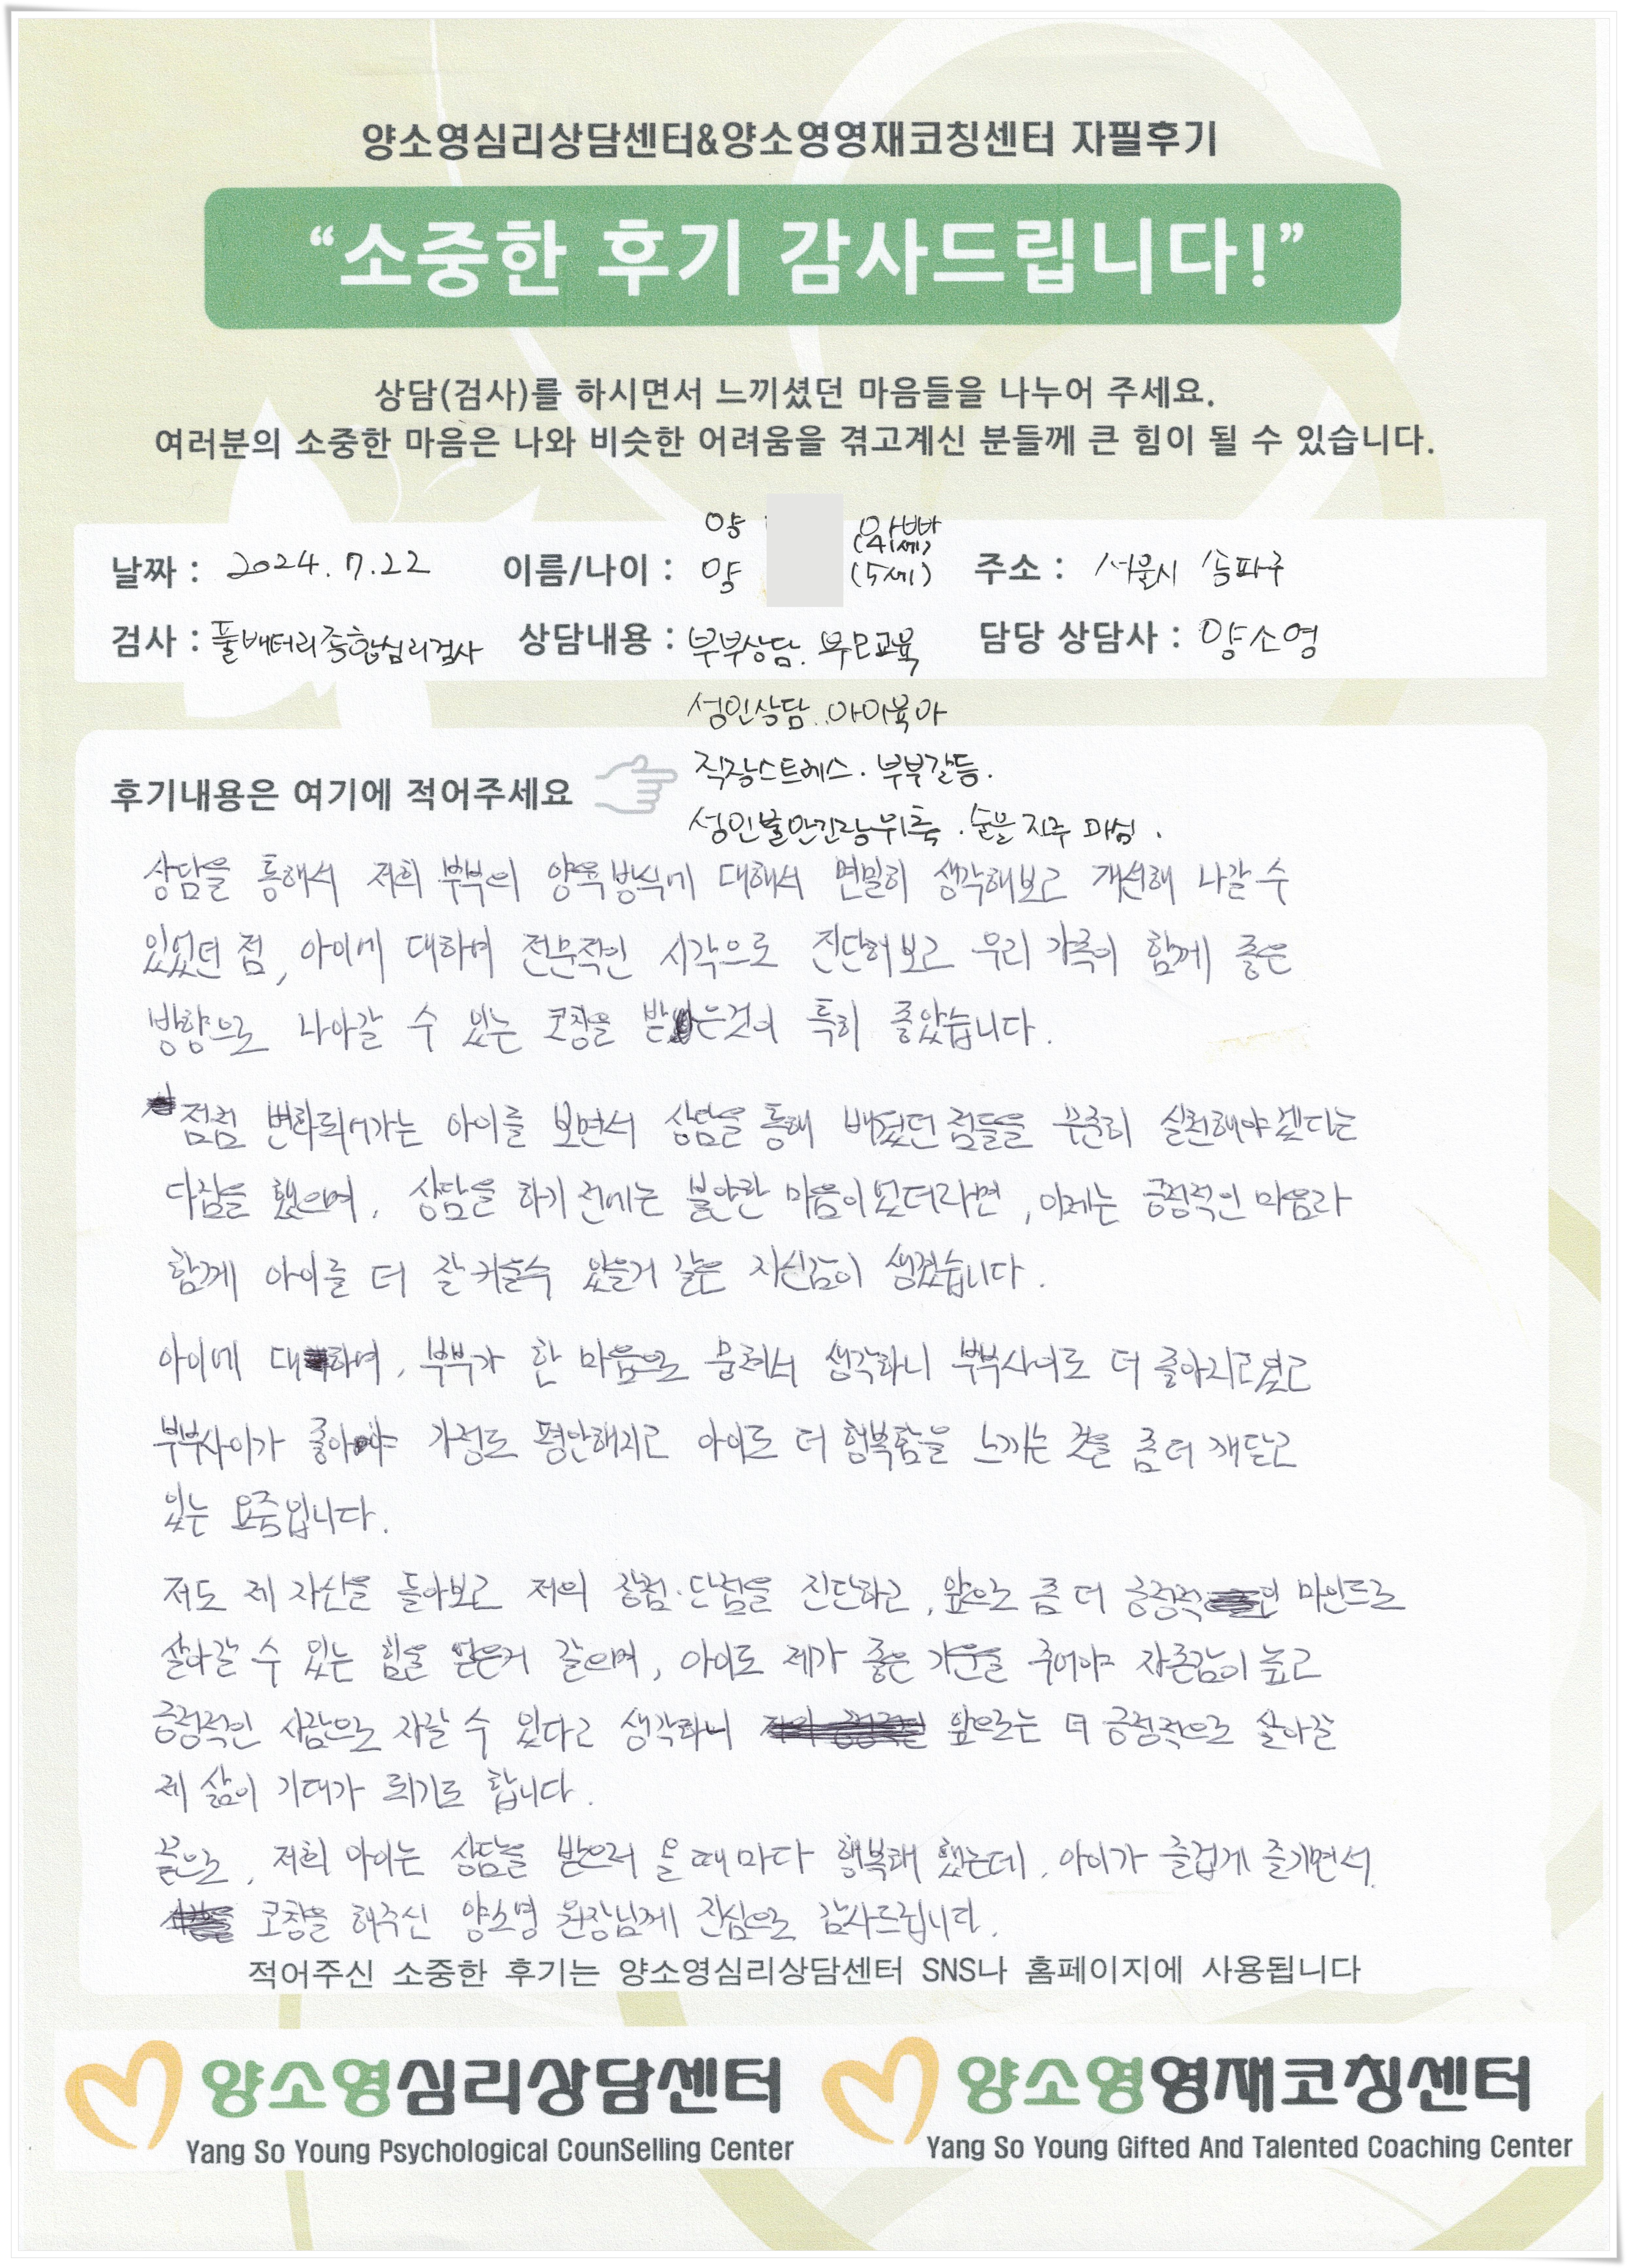 양소영심리상담센터&양소영영재코칭센터 자필후기
“소중한 후기 감사드립니다!”
상담(검사)를 하시면서 느끼셨던 마음들을 나누어 주세요.
여러분의 소중한 마음은 나와 비슷한 어려움을 겪고계신 분들께 큰 힘이 될 수 있습니다.
양 아빠
(41세)
날짜 : 2024.7.22 이름/나이 : 양 (5세) 주소 : 서울시 송파구
검사 : 풀배터리종합심리검사 상담내용 : 부부상담. 부모교육 담당 상담사 : 양소영
성인상담. 아이육아
직장스트레스. 부부갈등.
후기내용은 여기에 적어주세요
성인불안긴장위축. 술을 자주 마심.
상담을 통해서 저희 부부의 양육방식에 대해서 면밀히 생각해보고 개선해 나갈 수
있었던 점, 아이에 대하여 전문적인 시각으로 진단해보고 우리 가족이 함께 좋은
방향으로 나아갈 수 있는 코칭을 받은것이 특히 좋았습니다.
점점 변화되어가는 아이를 보면서 상담을 통해 배웠던 점들을 꾸준히 실천해야겠다는
다짐을 했으며, 상담을 하기 전에는 불안한 마음이었더라면, 이제는 긍정적인 마음과
함께 아이를 더 잘 키울수 있을거 같은 자신감이 생겼습니다.
아이에 대하여, 부부가 한 마음으로 뭉쳐서 생각하니 부부사이로 더 좋아지고있고
부부사이가 좋아야 가정도 평안해지고 아이도 더 행복함을 느끼는 것을 좀 더 깨닫고
있는 요즘입니다.
저도 제 자신을 돌아보고 저의 장점·단점을 진단하고, 앞으로 좀 더 긍정적인 마인드로
살아갈 수 있는 힘을 얻은거 같으며, 아이도 제가 좋은 기운을 주어야 자존감이 높고
긍정적인 사람으로 자랄 수 있다고 생각하니 앞으로는 더 긍정적으로 살아갈
제 삶이 기대가 되기도 합니다.
끝으로, 저희 아이는 상담을 받으러 올 때마다 행복해 했는데, 아이가 즐겁게 즐기면서
코칭을 해주신 양소영 원장님께 진심으로 감사드립니다.
적어주신 소중한 후기는 양소영심리상담센터 SNS나 홈페이지에 사용됩니다
양소영심리상담센터 양소영영재코칭센터
Yang So Young Psychological CounSelling Center Yang So Young Gifted And Talented Coaching Center